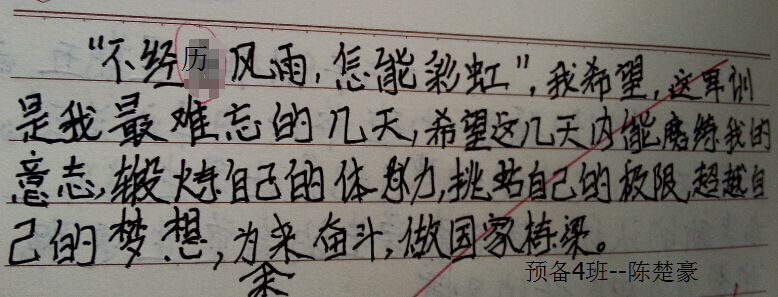 “不经历风雨,怎能彩虹”,我希望,这军训
是我最难忘的几天,希望这几天内能磨练我的
意志,锻炼自己的体魄力,挑战自己的极限,超越自
己的梦想,为来奋斗,做国家栋梁。
未
预备4班--陈楚豪